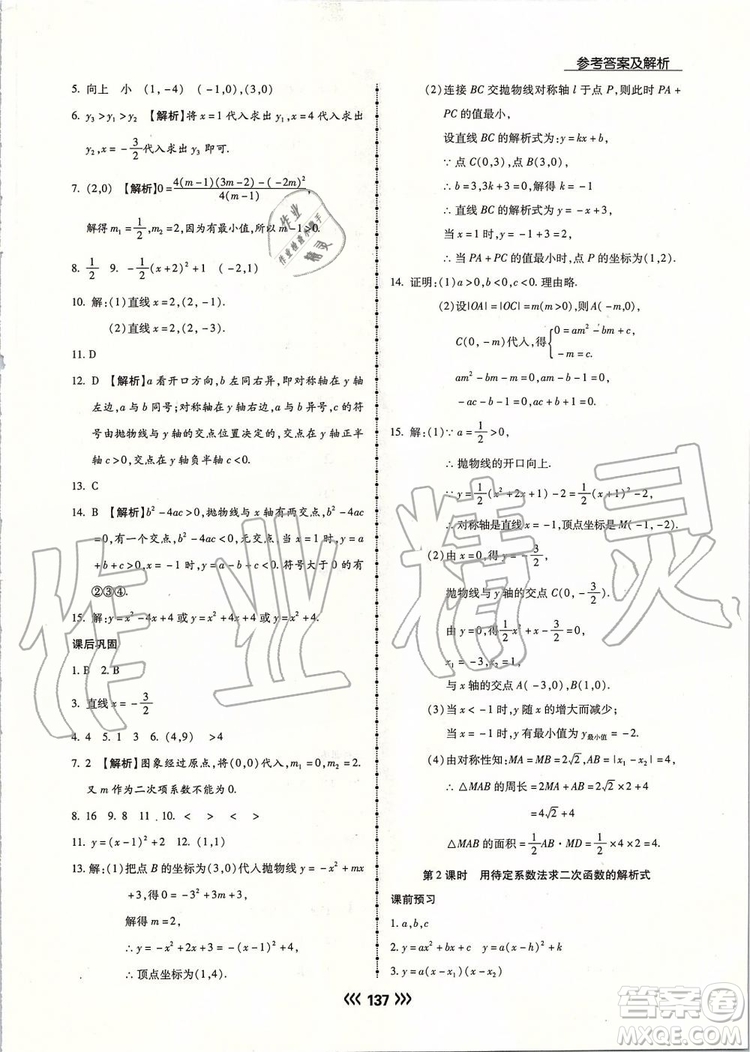 参考答案及解析
5. 向上 小 (1,-4) (-1,0),(3,0)
6. y₃>y₁>y₂ 【解析】将x=1代入求出y₁,x=4代入求出
y₂,x=-3/2代入求出y₃即可.
7. (2,0) 【解析】0=4(m-1)(3m-2)-(-2m)²/4(m-1)
解得m₁=1/2,m₂=2,因为有最小值,所以m-1>0.
8. 1/2 9. -1/2(x+2)²+1 (-2,1)
10. 解:(1)直线x=2,(2,-1).
(2)直线x=2,(2,-3).
11. D
12. D 【解析】a看开口方向,b左同右异,即对称轴在y轴
左侧,a与b同号;对称轴在y轴右边,a与b异号,c的符
号由抛物线与y轴的交点位置决定的.交点在y轴正半
轴c>0,交点在y轴负半轴c<0.
13. C
14. B 【解析】b²-4ac>0,抛物线与x轴有两交点,b²-4ac
=0,有一个交点,b²-4ac<0,无交点.当x=1时,y=a
+b+c>0,当x=-1时,y=a-b+c.符号大于0的有
②③④.
15. 解:y=x²-4x+4或y=x²+4x+4或y=-x²+4.
课后巩固
1. B 2. B
3. 直线x=-3/2
4. 4 5. 1 3 6. (4,9) >4
7. 2 【解析】图象经过原点,将(0,0)代入得m=0或m=2.
又m作为二次项系数不能为0.
8. 16 9. 8 11 . 10. < < >
11. y=(x-1)²+2 12. (1,1)
13. 解:(1)把点B的坐标为(3,0)代人抛物线y=-x²+mx
+3,得0=-3²+3m+3,
解得m=2,
∴y=-x²+2x+3=-(x-1)²+4,
∴顶点坐标为(1,4).
(2)连接BC交抛物线对称轴l于点P,则此时PA+
PC的值最小,
设直线BC的解析式为:y=kx+b,
∵点C(0,3),点B(3,0),
∴b=3,3k+3=0,∴k=-1.
∴直线BC的解析式为:y=-x+3,
当x=1时,y=-1+3=2,
∴当PA+PC的值最小时,点P的坐标为(1,2).
14. 证明:(1)a>0,b<0,c<0.理由略.
(2)设|OA|=|OC|=m(m>0),则A(-m,0),
C(0,-m)代人,得{0=am²-bm+c,
-m=c.
am²-bm-m=0,
-ac-b-1=0,
∴ac+b+1=0.
15. 解:(1)∵a=1/2>0,
∴抛物线的开口向上.
∵y=1/2(x²+2x+1)-2=1/2(x+1)²-2,
∴对称轴是直线x=-1,顶点坐标是M(-1,-2).
(2)由x=0,得y=-3/2,
抛物线与y轴的交点C(0,-3/2).
由y=0,得1/2x²+x-3/2=0,
x₁=-3,x₂=1.
与x轴的交点A(-3,0),B(1,0).
(3)当x<-1时,y随x的增大而减少;
当x=-1时,y有最小值为y最小值=-2.
(4)由对称性知:MA=MB=2√2,AB=|x₁-x₂|=4
∴△MAB的周长=2MA+AB=2×2√2+4
=4√2+4
△MAB的面积=1/2AB·MD=1/2×4×2=4.
第2课时 用待定系数法求二次函数的解析式
课前预习
1. a,b,c
2. y=ax²+bx+c y=a(x-h)²+k
3. y=a(x-x₁)(x-x₂)
137
作业精灵
作业
作业检查小帮手
精灵
答案圈
MXQE.COM